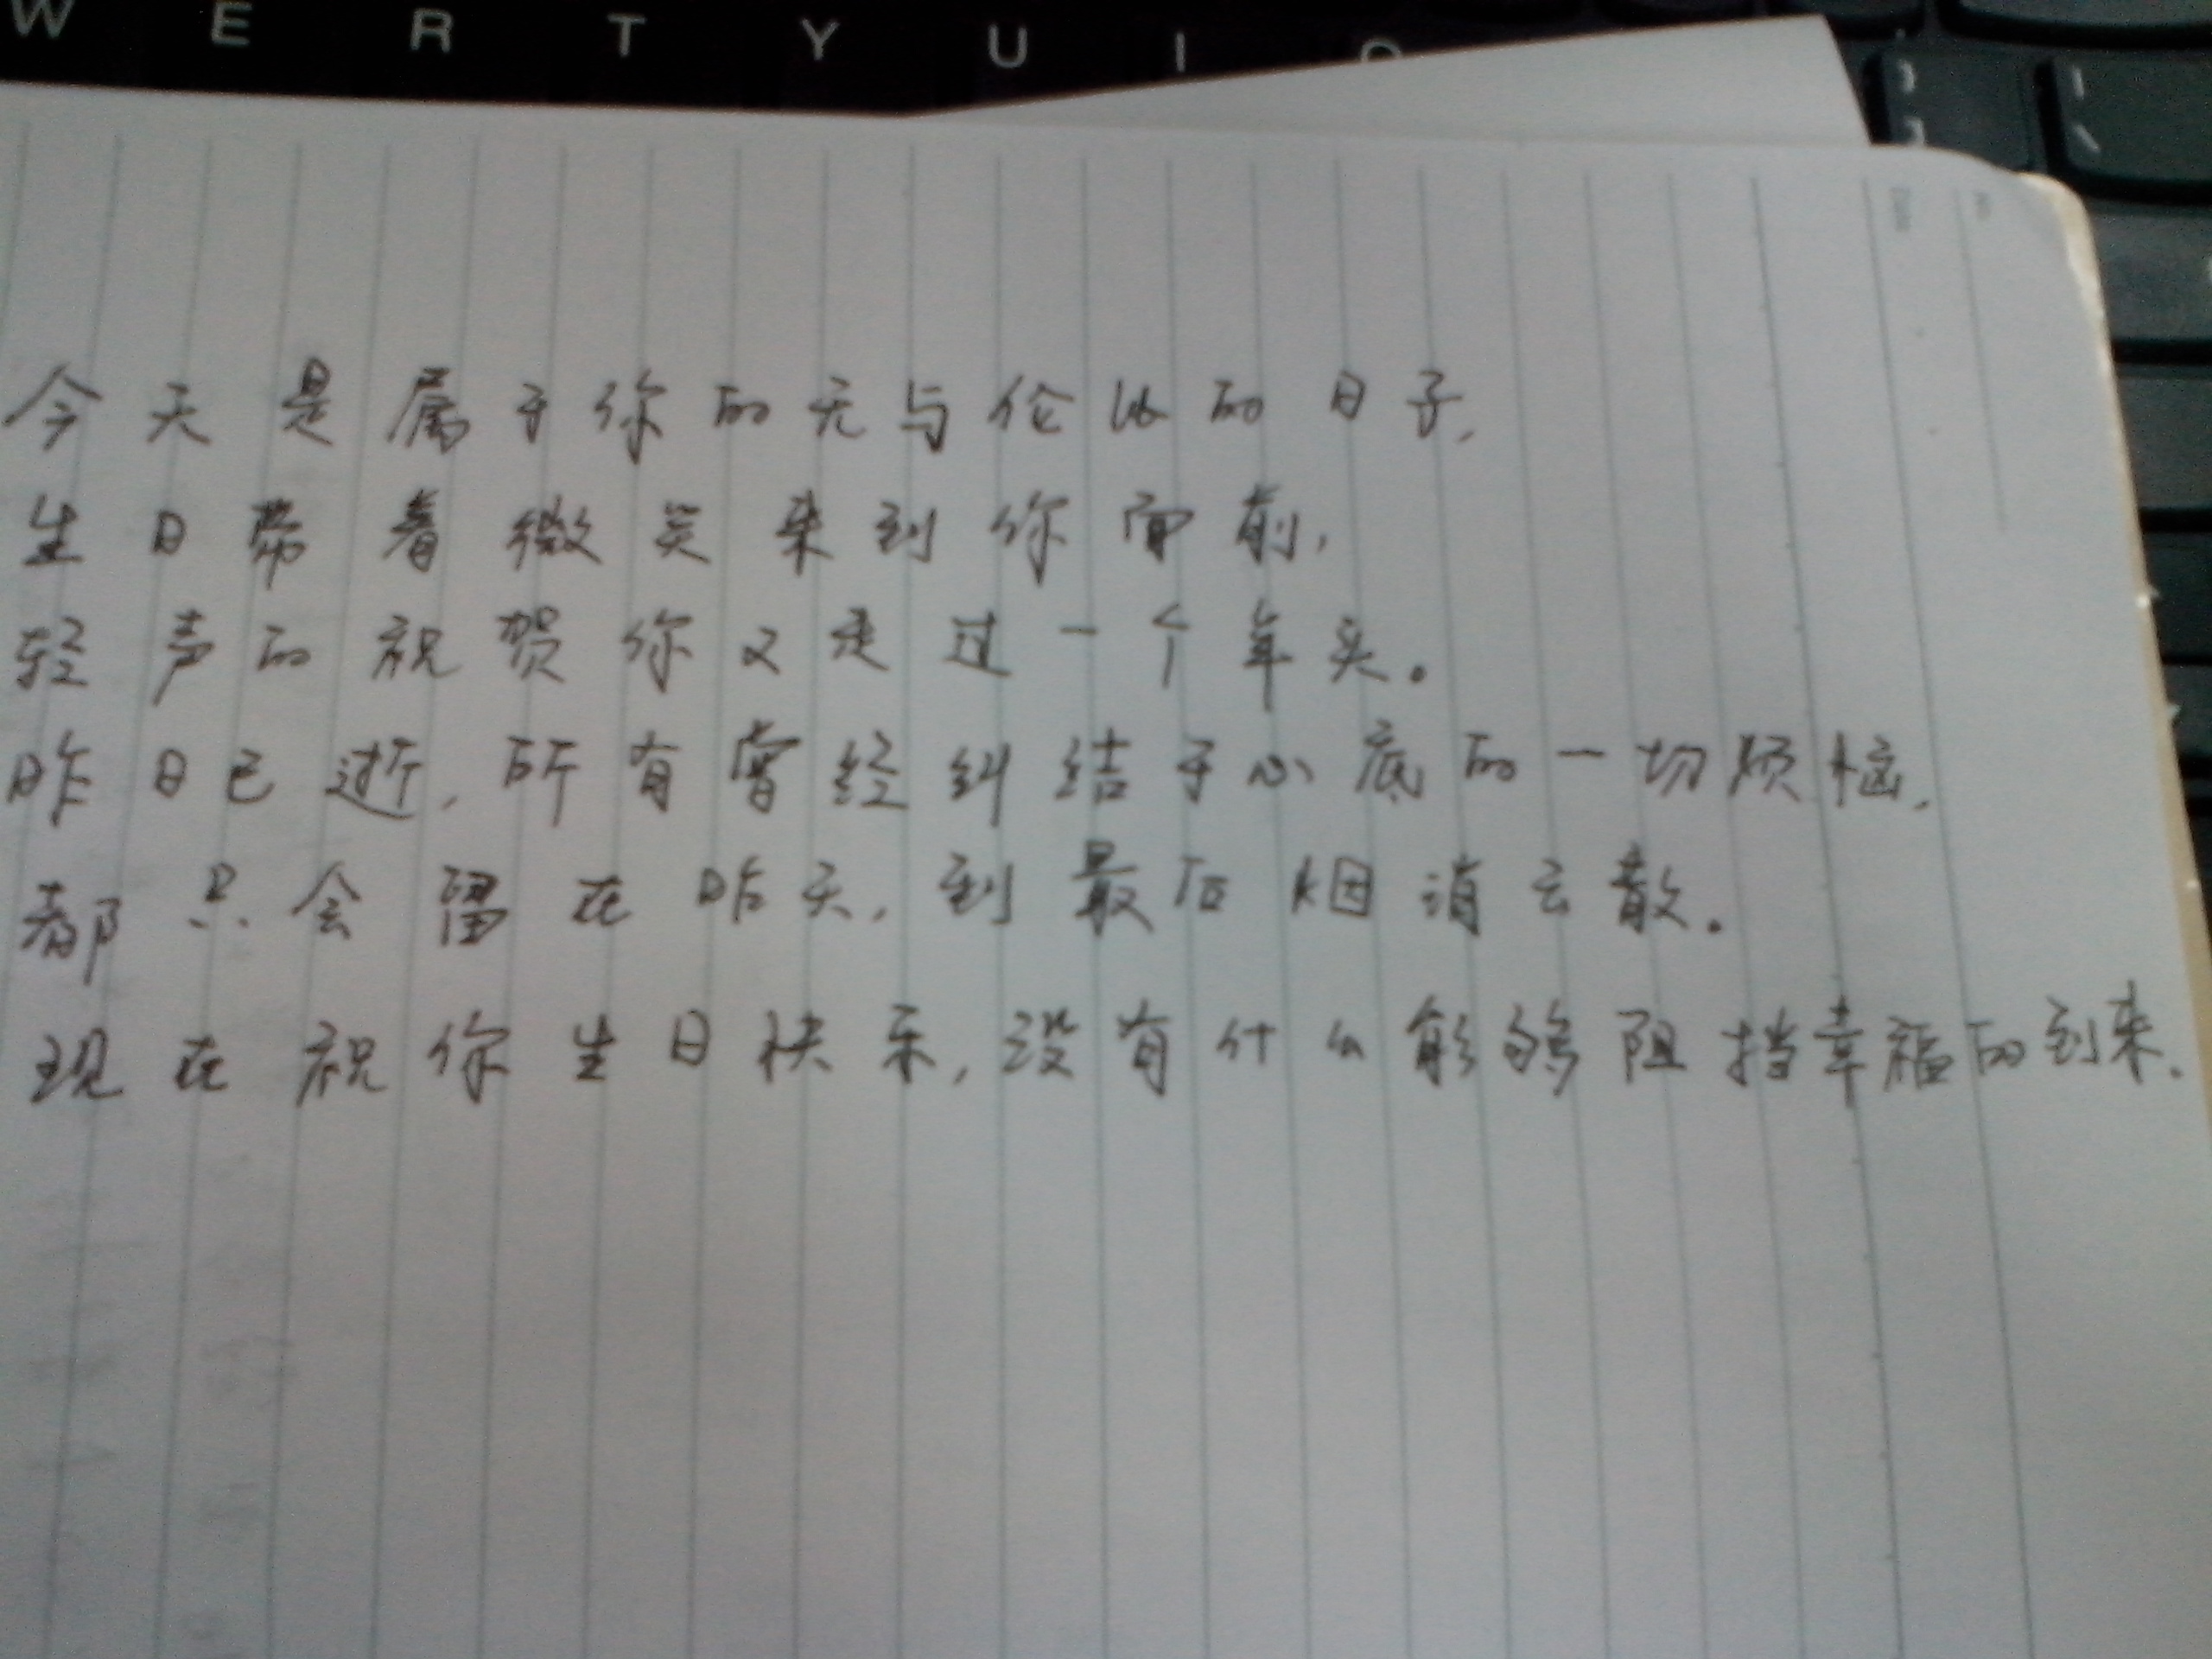 W E R T Y U I O
今天是属于你的无与伦比的日子,
生日带着微笑来到你面前,
轻声的祝贺你又走过一个年头。
昨日已逝,所有曾经纠结于心底的一切烦恼,
都只会留在昨天,到最后烟消云散.
现在祝你生日快乐,没有什么能够阻挡幸福的到来.